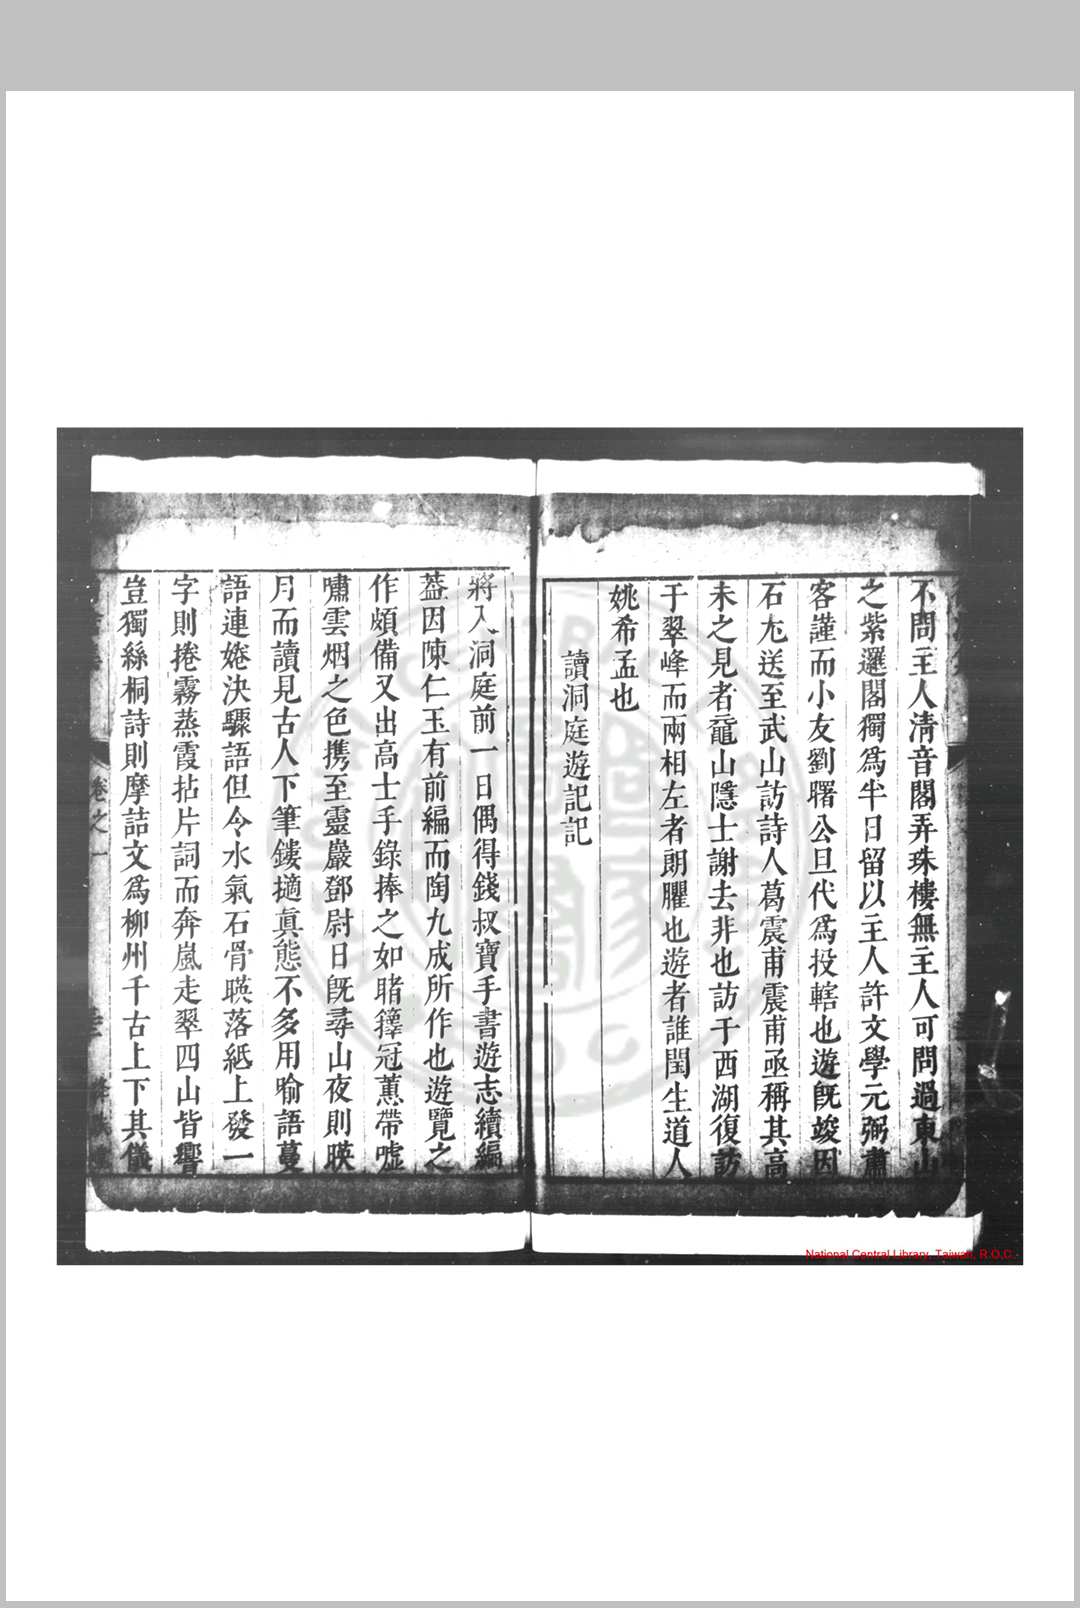 不問主人清音閣弄珠樓無主人可問過東山
之紫邏閣獨爲半日留以主人許文學元弼肅
客謹而小友劉曙公旦代爲投轄也遊旣竣因
石尤送至武山訪詩人葛震甫震甫亟稱其高
未之見者黿山隱士謝去非也訪于西湖復訪
于翠峰而兩相左者朗臞也遊者誰閶生道人
姚希孟也
讀洞庭遊記記
將入洞庭前一日偶得錢叔寶手書遊志續編
葢因陳仁玉有前編而陶九成所作也遊覽之
作頗備又出高士手錄捧之如睹籜冠蕙帶噓
嘯雲烟之色携至靈巖鄧尉日旣尋山夜則暎
月而讀見古人下筆鏤擿眞態不多用喻語蔓
語連婘決驟語但令水氣石骨暎落紙上發一
字則捲霧蒸霞拈片詞而奔嵐走翠四山皆響
豈獨絲桐詩則摩詰文爲柳州千古上下其儀
卷之一
National Central Library, Taiwan, R.O.C.